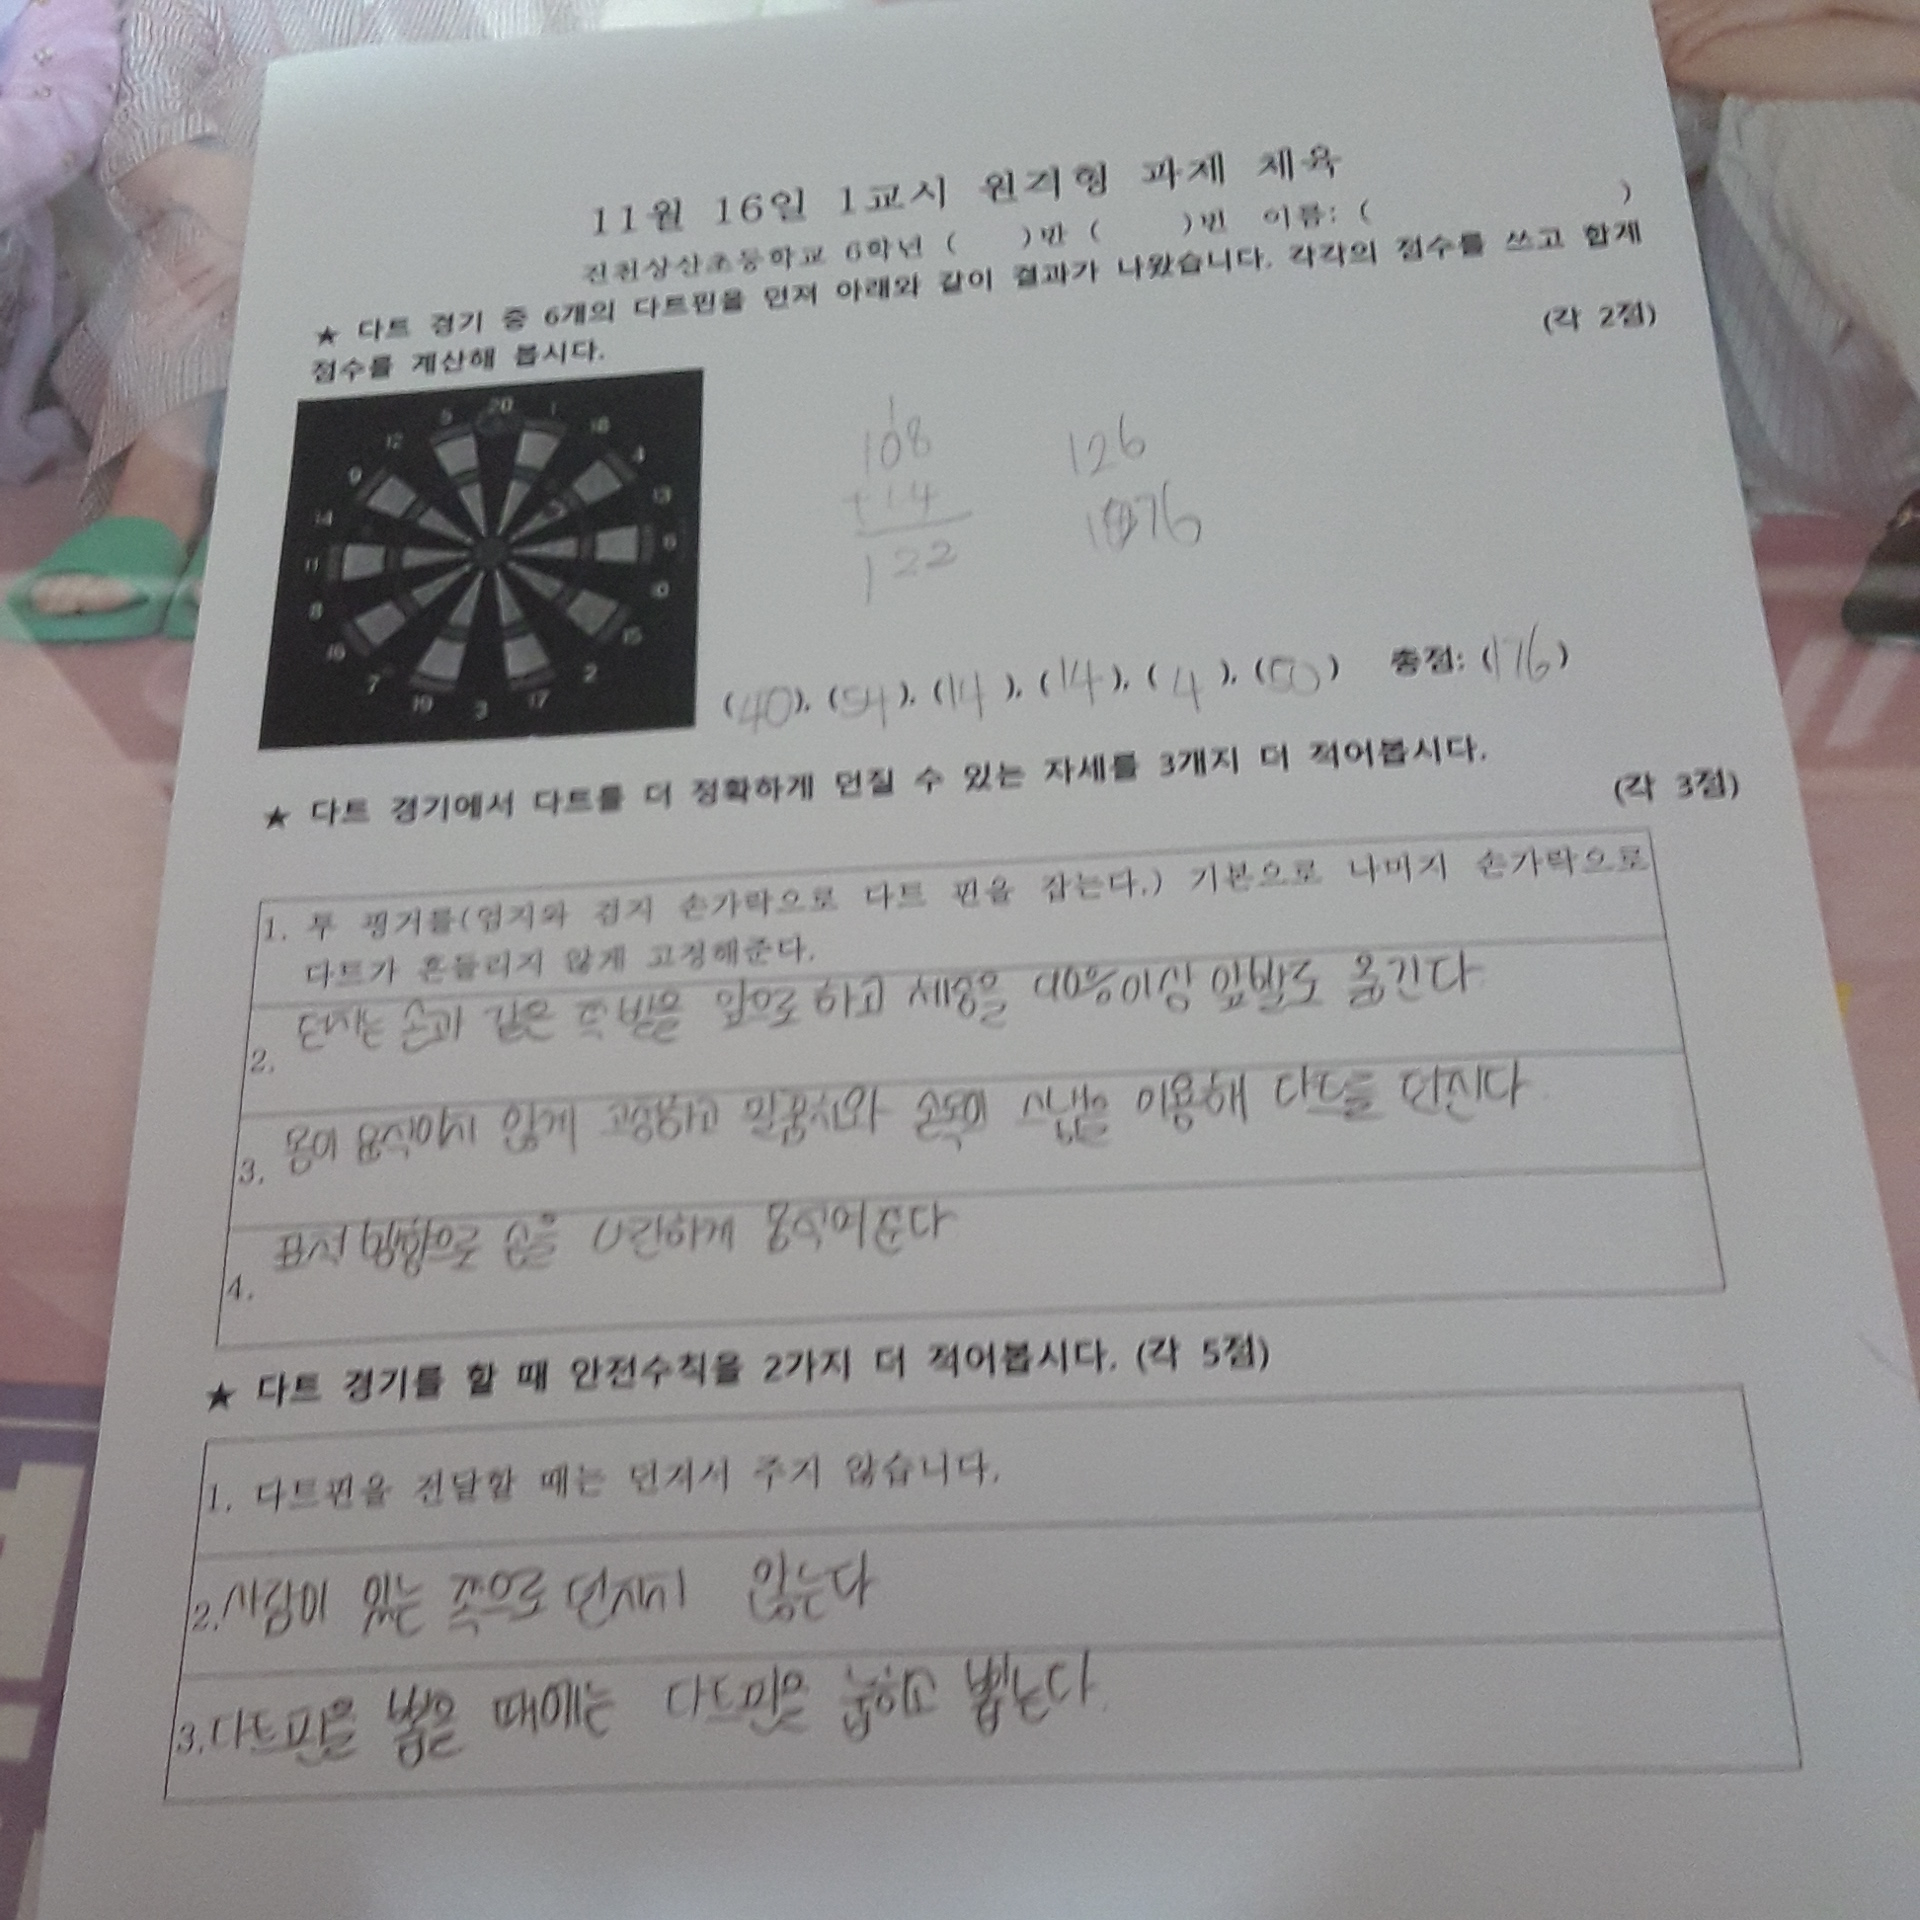 11월 16일 1교시 원격형 과제 체육
진천상산초등학교 6학년 ( )반 ( )번 이름: ( )
★ 다트 경기 중 6개의 다트핀을 던져 아래와 같이 결과가 나왔습니다. 각각의 점수를 쓰고 합계
점수를 계산해 봅시다. (각 2점)
5 20 1
12 18
9 4
14 13
11 6
8 10
16 15
7 2
19 3 17
1
108 126
+14 176
122
(40), (54), (14), (14), (4), (50) 총점: (176)
★ 다트 경기에서 다트를 더 정확하게 던질 수 있는 자세를 3개지 더 적어봅시다.
(각 3점)
1. 투 핑거를(엄지와 검지 손가락으로 다트 핀을 잡는다.) 기본으로 나머지 손가락으로
다트가 흔들리지 않게 고정해준다.
2. 던지는 손과 같은 쪽 발을 앞으로 하고 체중을 90%이상 앞발로 옮긴다
3. 몸이 움직이지 않게 고정하고 팔꿈치와 손목 스냅을 이용해 다트를 던진다
4. 표적 방향으로 손을 나란하게 움직여준다
★ 다트 경기를 할 때 안전수칙을 2가지 더 적어봅시다. (각 5점)
1. 다트핀을 전달할 때는 던져서 주지 않습니다.
2. 사람이 있는 쪽으로 던지지 않는다
3. 다트핀을 뽑을 때에는 다트판을 잡고 뽑는다.